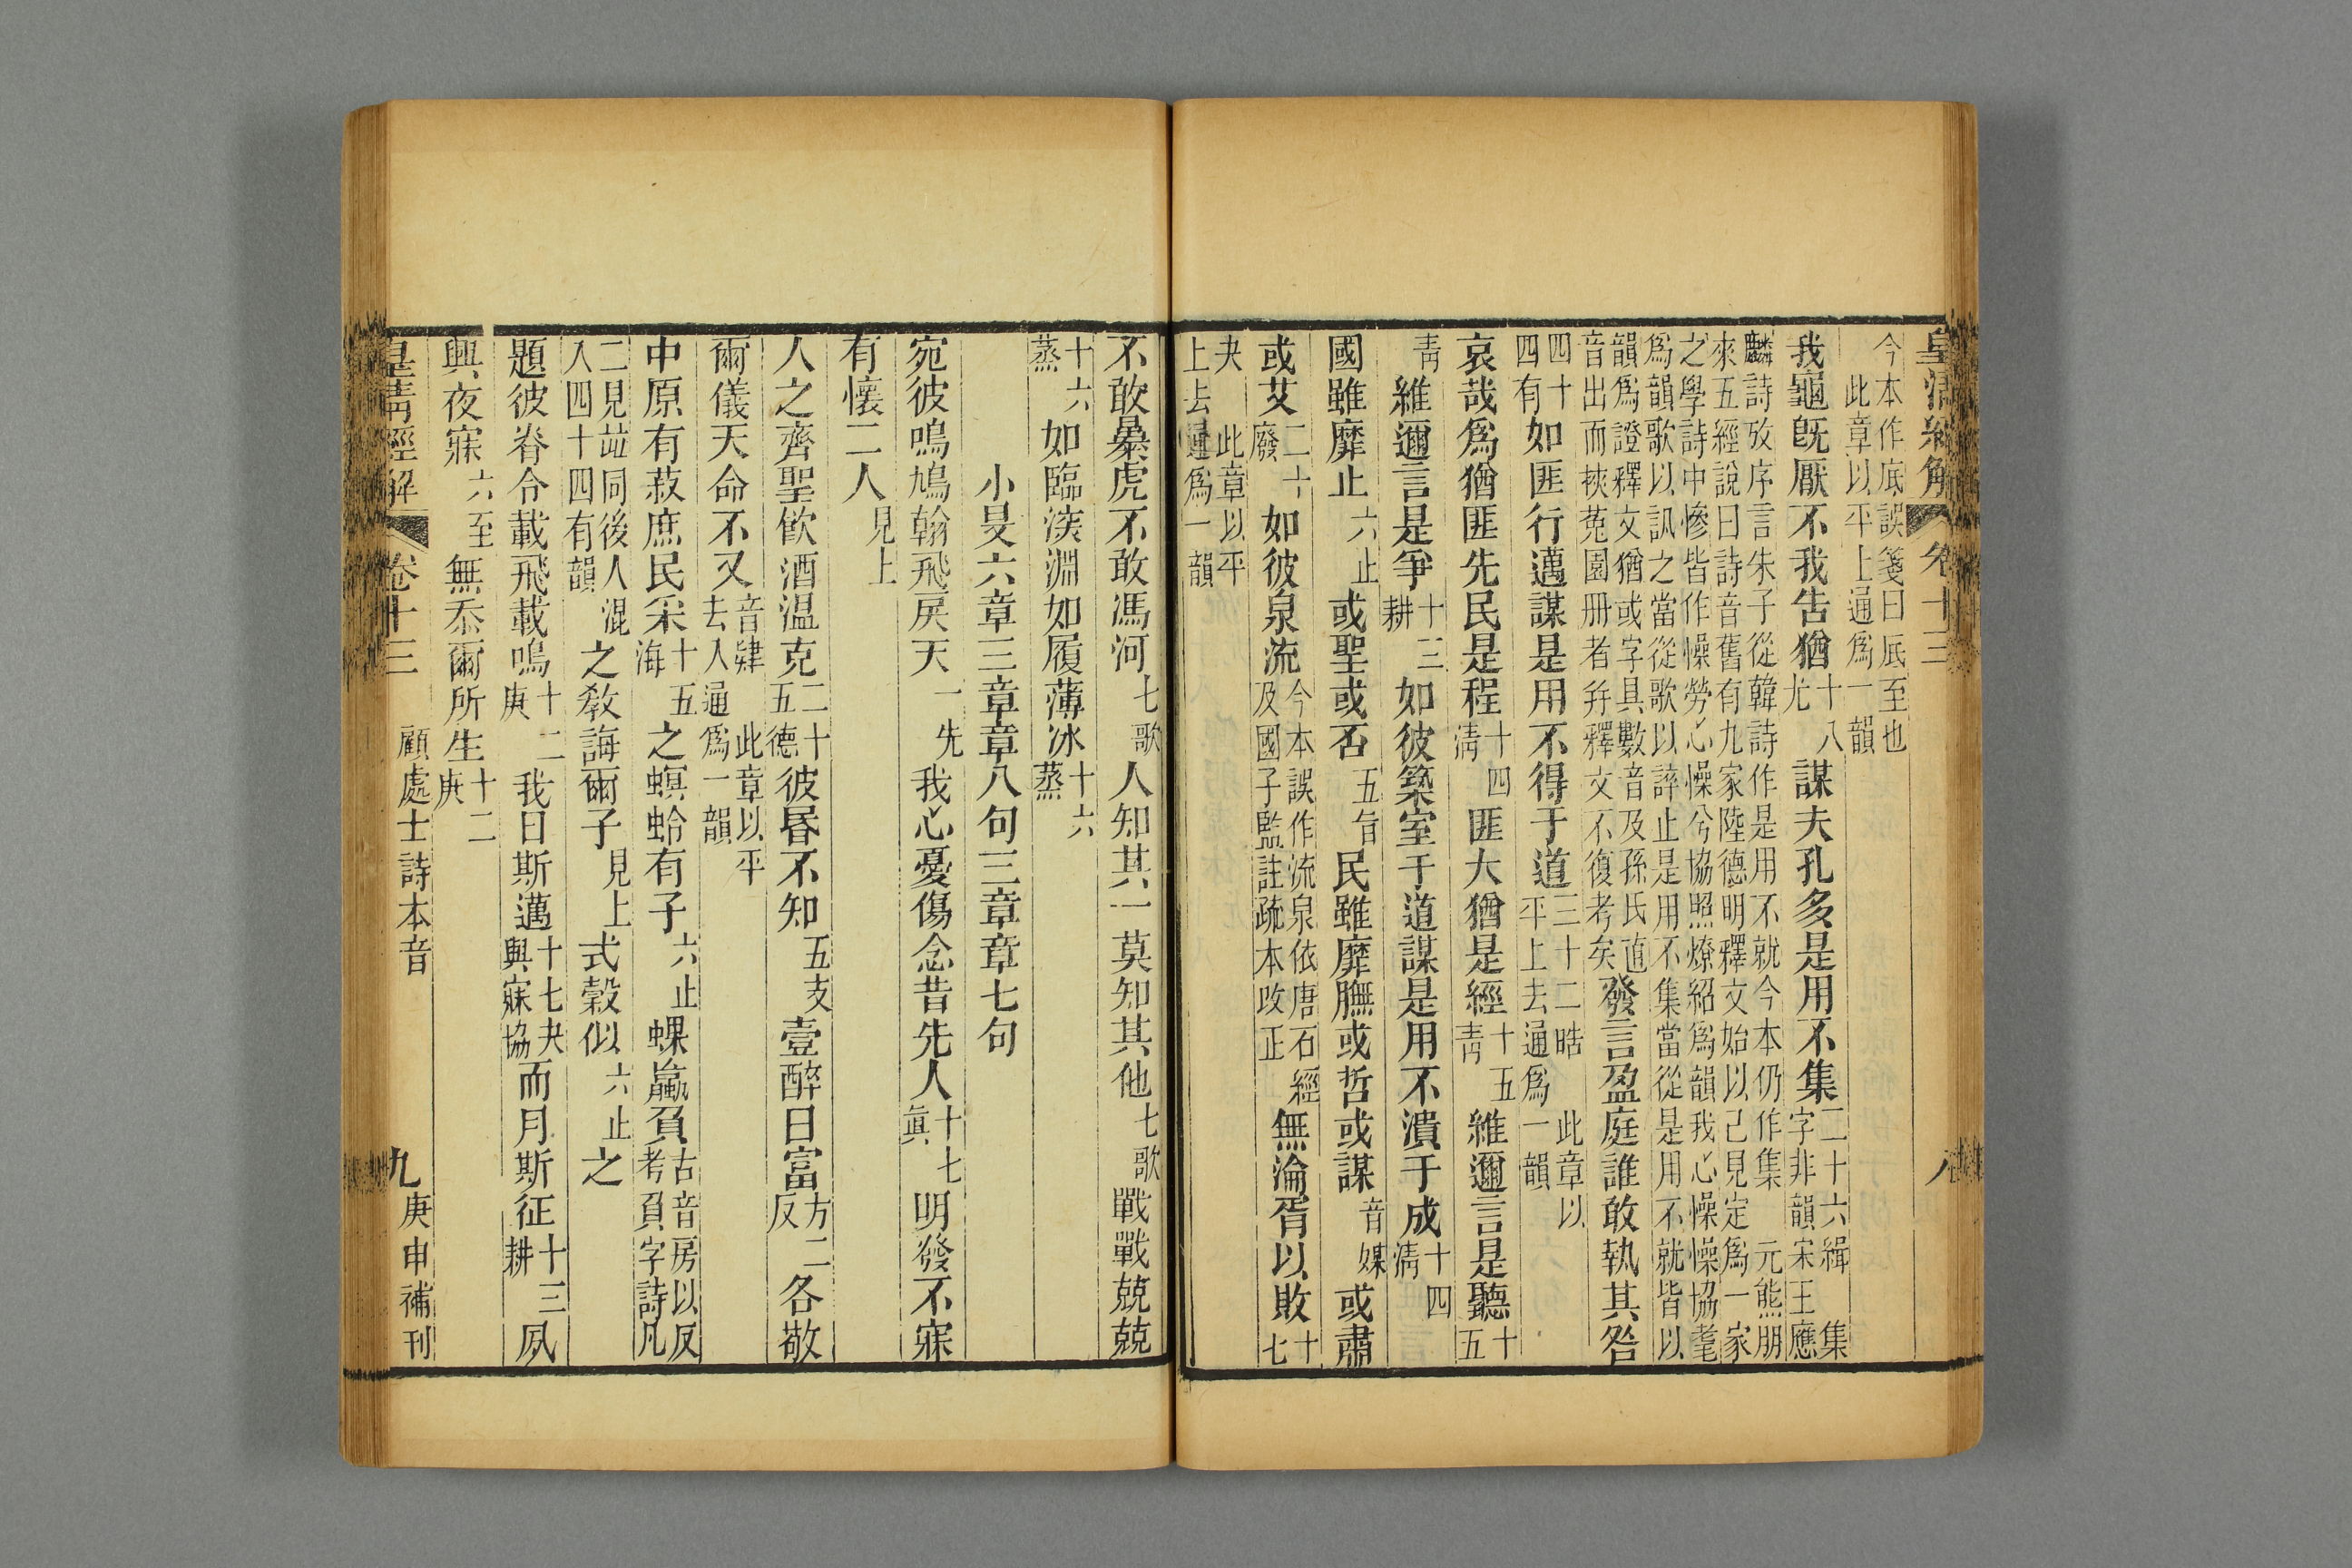 皇清經解 卷十三 八
今本作底誤箋曰厎至也
此章以平上通爲一韻
我龜旣厭不我告猶十八尤謀夫孔多是用不集二十六緝 集字非韻宋王應
麟詩攷序言朱子從韓詩作是用不就今本仍作集 元熊朋
來五經說曰詩音舊有九家陸德明釋文始以己見定爲一家
之學詩中慘皆作懆勞心懆兮協照燎紹爲韻我心懆懆協耄
爲韻歌以訊之當從歌以誶止是用不集當從是用不就皆以
韻爲證釋文猶或字具數音及孫氏直
音出而挾菟園册者幷釋文不復考矣發言盈庭誰敢執其咎
四十四有如匪行邁謀是用不得于道三十二晧 此章以平上去通爲一韻
哀哉爲猶匪先民是程十四淸匪大猶是經十五靑維邇言是聽十五
靑維邇言是爭十三耕如彼築室于道謀是用不潰于成十四淸
國雖靡止六止或聖或否五旨民雖靡膴或哲或謀音媒或肅
或艾二十廢如彼泉流今本誤作流泉依唐石經及國子監註疏本改正無淪胥以敗十七
夬 此章以平上去通爲一韻
不敢暴虎不敢馮河七歌人知其一莫知其他七歌戰戰兢兢
十六蒸如臨深淵如履薄冰十六蒸
小旻六章三章章八句三章章七句
宛彼鳴鳩翰飛戾天一先我心憂傷念昔先人十七眞明發不寐
有懷二人見上
人之齊聖飮酒温克二十五德彼昬不知五支壹醉日富方二反各敬
爾儀天命不又音肄 此章以平去入通爲一韻
中原有菽庶民采十五海之螟蛉有子六止蜾蠃負古音房以反考負字詩凡
二見竝同後人混入四十四有韻之敎誨爾子見上式穀似六止之
題彼脊令載飛載鳴十二庚我日斯邁十七夬與寐協而月斯征十三耕夙
興夜寐六至無忝爾所生十二庚
皇淸經解 卷十三 顧處士詩本音 九 庚申補刊